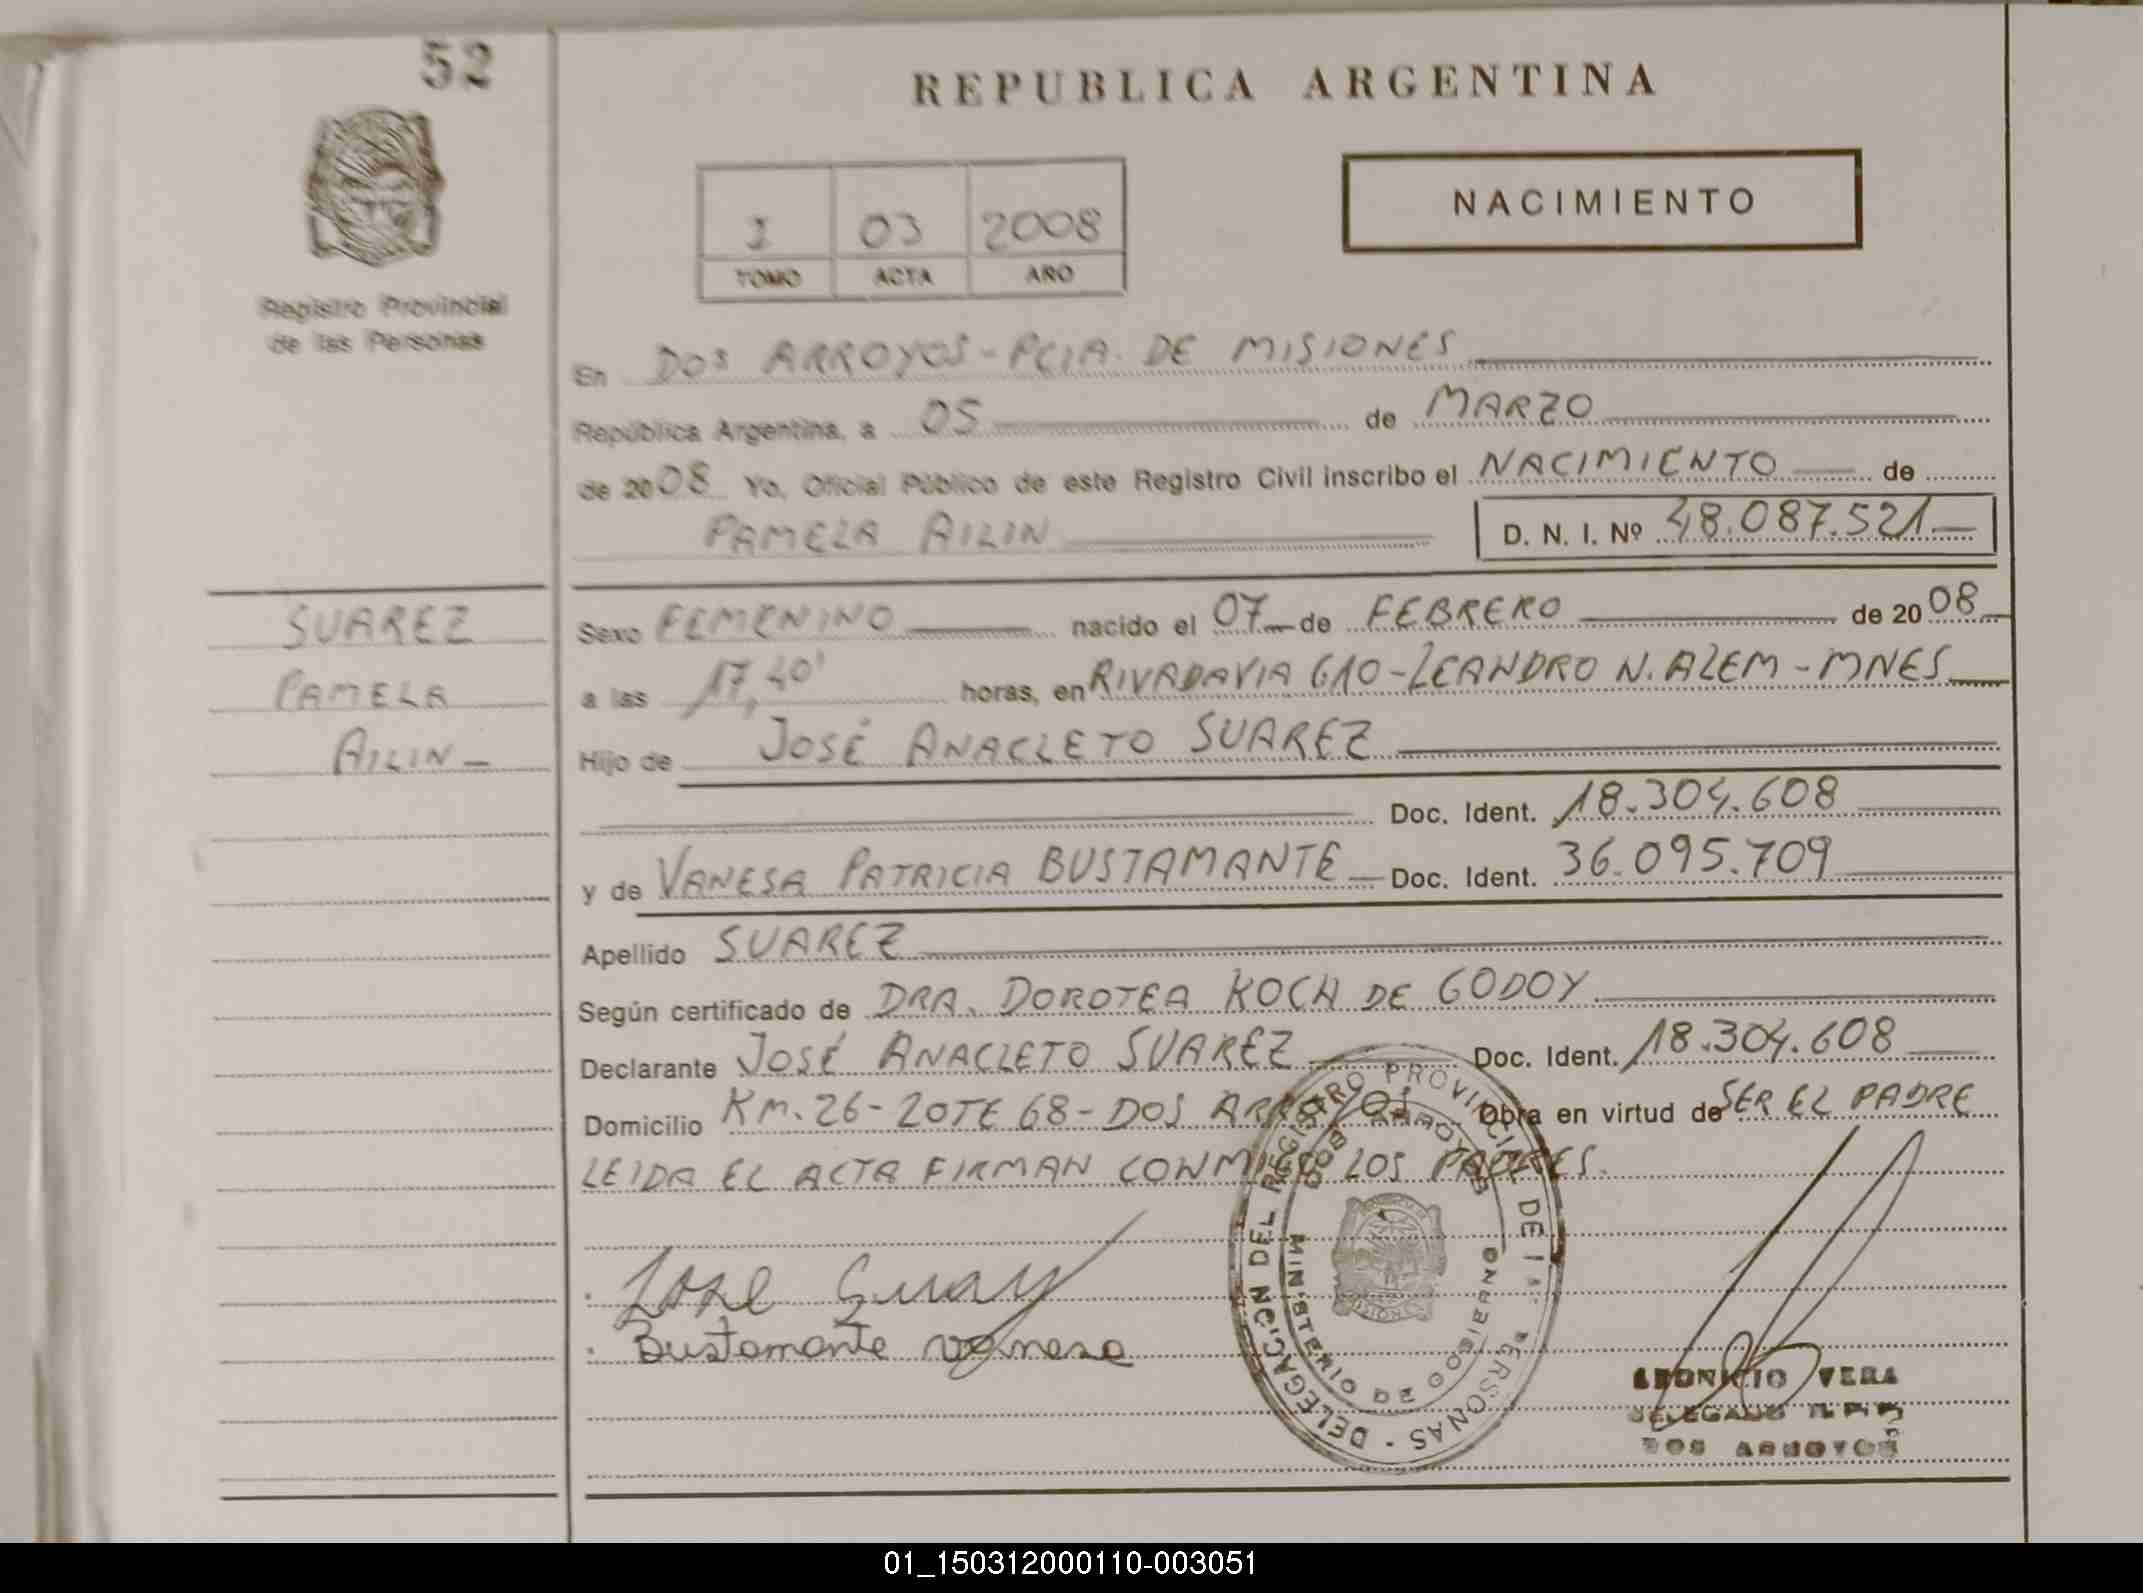 52
REPUBLICA ARGENTINA
NACIMIENTO
1 03 2008
TOMO ACTA AÑO
Registro Provincial
de las Personas
En DOS ARROYOS - PCIA. DE MISIONES
República Argentina, a 05 de MARZO
de 2008 Yo, Oficial Público de este Registro Civil inscribo el NACIMIENTO de
PAMELA AILIN D. N. I. Nº 48.087.521
SUAREZ
PAMELA
AILIN
Sexo FEMENINO nacido el 07 de FEBRERO de 2008
a las 17,40' horas, en RIVADAVIA 610 - LEANDRO N. ALEM - MNES
Hijo de JOSÉ ANACLETO SUAREZ
Doc. Ident. 18.304.608
y de VANESA PATRICIA BUSTAMANTE Doc. Ident. 36.095.709
Apellido SUAREZ
Según certificado de DRA. DOROTEA KOCH DE GODOY
Declarante JOSÉ ANACLETO SUAREZ Doc. Ident. 18.304.608
Domicilio KM. 26 - LOTE 68 - DOS ARROYOS Obra en virtud de SER EL PADRE
LEIDA EL ACTA FIRMAN CONMIGO LOS PADRES.
Jose Suarez
Bustamante vanesa
DELEGACION DEL REGISTRO PROVINCIAL DE LAS PERSONAS -
DOS ARROYOS
MINISTERIO DE GOBIERNO
LEONICIO VERA
DELEGADO R. P. P.
DOS ARROYOS
01_150312000110-003051